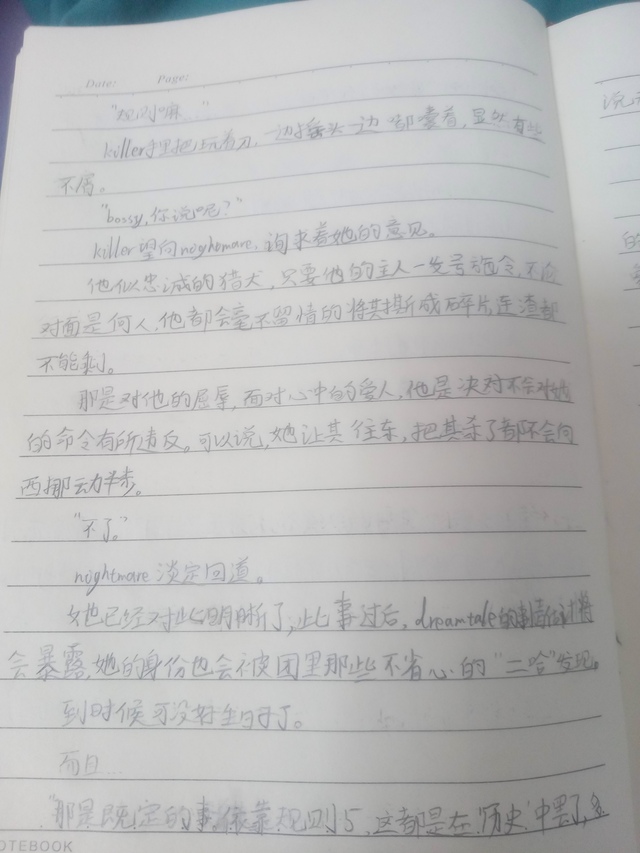 Date: Page:
"规则嘛 "
killer手里把玩着刀,一边摇头一边嘟囔着,显然有些
不屑。
"bossy,你说呢?"
killer望向nightmare,询求着她的意见。
他似忠诚的猎犬,只要他的主人一发号施令,不论
对面是何人,他都会毫不留情的将其撕成碎片连渣都
不能剩。
那是对他的屈辱,面对心中的爱人,他是决对不会对她
的命令有所违反。可以说,她让其往东,把其杀了都不会向
西挪动半步。
"不了。"
nightmare 淡定回道。
她已经对此明晰了,此事过后,dreamtale的 将
会暴露,她的身份也会被团里那些不省心的"二哈"发现,
到时候可没好生日了。
而且...
"那是既定的事,依靠规则5,这都是在'历史'中罢了,
NOTEBOOK
说
的